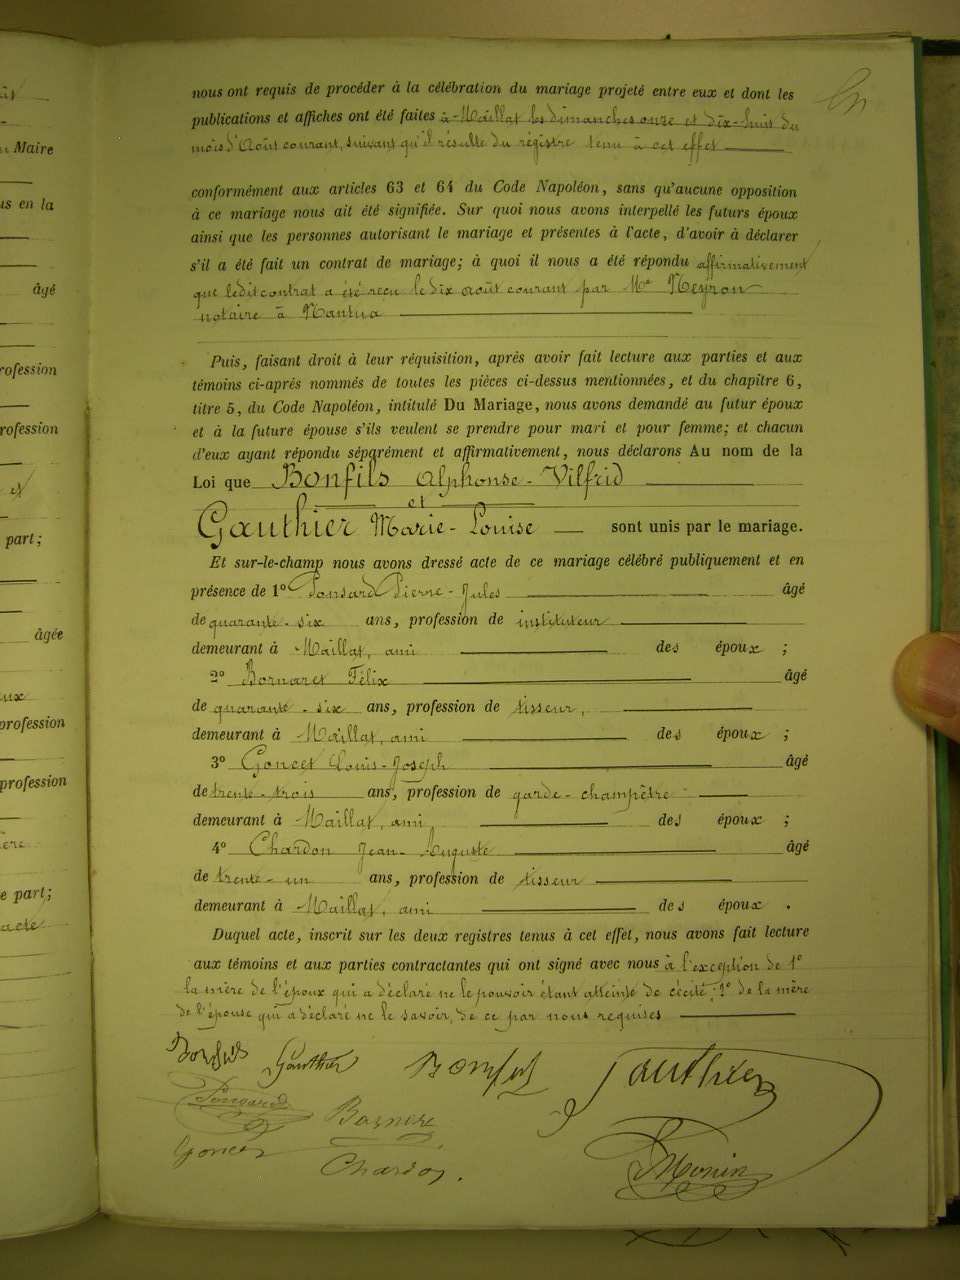 nous ont requis de procéder à la célébration du mariage projeté entre eux et dont les
publications et affiches ont été faites à Maillat les dimanches onze et dix-huit du
mois d'Août courant, suivant qu'il résulte du registre tenu à cet effet
conformément aux articles 63 et 64 du Code Napoléon, sans qu'aucune opposition
à ce mariage nous ait été signifiée. Sur quoi nous avons interpellé les futurs époux
ainsi que les personnes autorisant le mariage et présentes à l'acte, d'avoir à déclarer
s'il a été fait un contrat de mariage; à quoi il nous a été répondu affirmativement
que ledit contrat a été reçu le dix août courant par Me Neyron
notaire à Nantua
Puis, faisant droit à leur réquisition, après avoir fait lecture aux parties et aux
témoins ci-après nommés de toutes les pièces ci-dessus mentionnées, et du chapitre 6,
titre 5, du Code Napoléon, intitulé Du Mariage, nous avons demandé au futur époux
et à la future épouse s'ils veulent se prendre pour mari et pour femme; et chacun
d'eux ayant répondu séparément et affirmativement, nous déclarons Au nom de la
Loi que Bonfils Alphonse-Vilfrid
et
Gauthier Marie-Louise sont unis par le mariage.
Et sur-le-champ nous avons dressé acte de ce mariage célébré publiquement et en
présence de 1° Ponsard Pierre-Jules âgé
de quarante-six ans, profession de instituteur
demeurant à Maillat, ami des époux ;
2° Bornaret Félix âgé
de quarante-six ans, profession de tisseur,
demeurant à Maillat, ami des époux ;
3° Goncet Louis-Joseph âgé
de trente-trois ans, profession de garde-champêtre
demeurant à Maillat, ami, des époux ;
4° Chardon Jean-Auguste âgé
de trente-un ans, profession de tisseur
demeurant à Maillat, ami des époux .
Duquel acte, inscrit sur les deux registres tenus à cet effet, nous avons fait lecture
aux témoins et aux parties contractantes qui ont signé avec nous à l'exception de 1°
la mère de l'époux qui a déclaré ne le pouvoir étant atteinte de cécité; 2° de la mère
de l'épouse qui a déclaré ne le savoir, de ce par nous requises
Bonfils Gauthier Bonfils Gauthier
Ponsard
Goncet Chardon
Monin
u Maire
us en la
âgé
rofession
rofession
et
part;
âgée
aux
profession
profession
e part;
acte